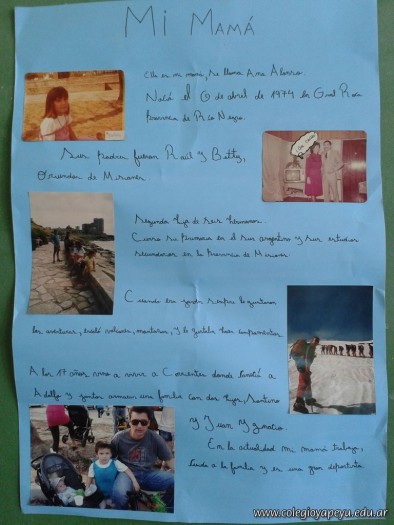 Mi Mamá
Ella es mi mamá, se llama Ana Alonso.
Nació el 6 de abril de 1974 en Gral Roca
provincia de Rio Negro.
Sus padres fueron Raúl y Betty,
Oriundos de Misiones
Segunda hija de seis hermanos.
Curso su primaria en el sur argentino y sus estudios
secundarios en la provincia de Misiones
Cuando era joven siempre le gustaron
las aventuras, escaló volcanes, montañas, y le gustaba hacer campamentos
A los 17 años vino a vivir a Corrientes donde conoció a
Adolfo y juntos armaron una familia con dos hijos, Santino
y Juan Ignacio.
En la actualidad mi mamá trabaja,
cuida a la familia y es una gran deportista.
www.colegioyapeyu.edu.ar